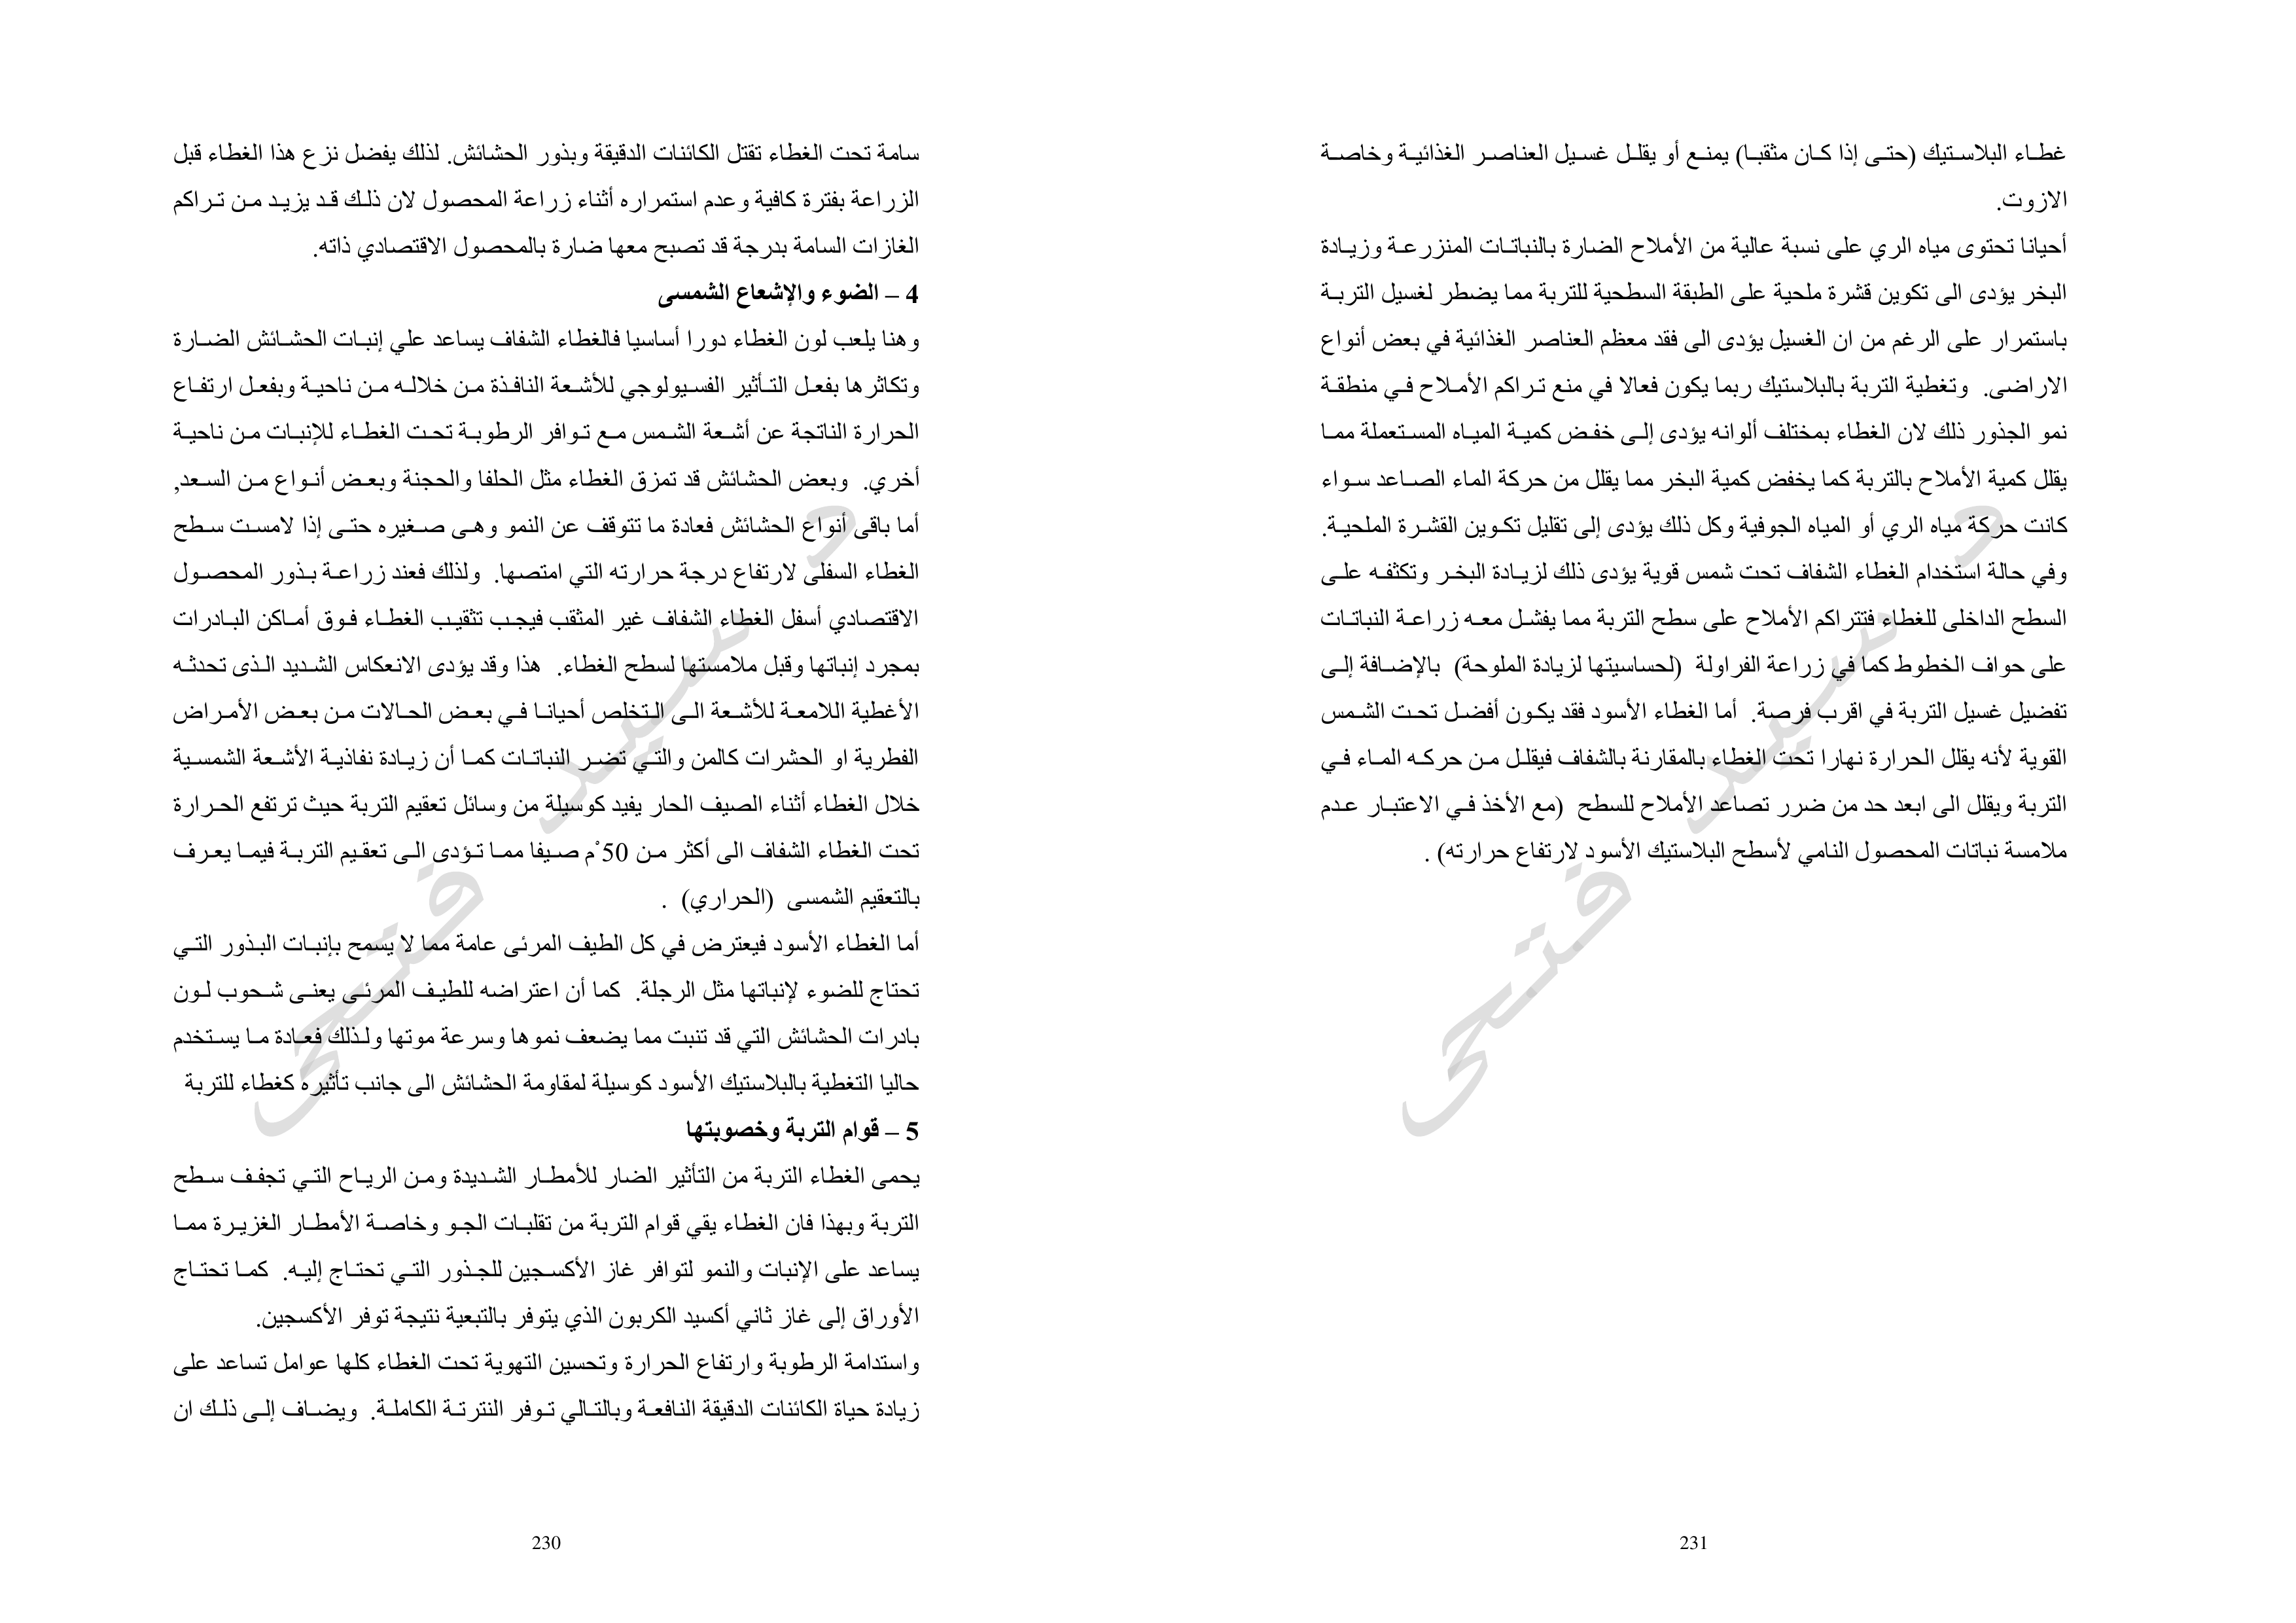 سامة تحت الغطاء تقتل الكائنات الدقيقة وبذور الحشائش. لذلك يفضل نزع هذا الغطاء قبل
الزراعة بفترة كافية وعدم استمراره أثناء زراعة المحصول لان ذلك قد يزيد من تراكم
الغازات السامة بدرجة قد تصبح معها ضارة بالمحصول الاقتصادي ذاته.
4 – الضوء والإشعاع الشمسى
وهنا يلعب لون الغطاء دورا أساسيا فالغطاء الشفاف يساعد علي إنبات الحشائش الضارة
وتكاثرها بفعل التأثير الفسيولوجي للأشعة النافذة من خلاله من ناحية وبفعل ارتفاع
الحرارة الناتجة عن أشعة الشمس مع توافر الرطوبة تحت الغطاء للإنبات من ناحية
أخري. وبعض الحشائش قد تمزق الغطاء مثل الحلفا والحجنة وبعض أنواع من السعد,
أما باقى أنواع الحشائش فعادة ما تتوقف عن النمو وهى صغيره حتى إذا لامست سطح
الغطاء السفلى لارتفاع درجة حرارته التي امتصها. ولذلك فعند زراعة بذور المحصول
الاقتصادي أسفل الغطاء الشفاف غير المثقب فيجب تثقيب الغطاء فوق أماكن البادرات
بمجرد إنباتها وقبل ملامستها لسطح الغطاء. هذا وقد يؤدى الانعكاس الشديد الذى تحدثه
الأغطية اللامعة للأشعة الى التخلص أحيانا في بعض الحالات من بعض الأمراض
الفطرية او الحشرات كالمن والتي تضر النباتات كما أن زيادة نفاذية الأشعة الشمسية
خلال الغطاء أثناء الصيف الحار يفيد كوسيلة من وسائل تعقيم التربة حيث ترتفع الحرارة
تحت الغطاء الشفاف الى أكثر من 50°م صيفا مما تؤدى الى تعقيم التربة فيما يعرف
بالتعقيم الشمسى (الحراري) .
أما الغطاء الأسود فيعترض في كل الطيف المرئى عامة مما لا يسمح بإنبات البذور التي
تحتاج للضوء لإنباتها مثل الرجلة. كما أن اعتراضه للطيف المرئى يعنى شحوب لون
بادرات الحشائش التي قد تنبت مما يضعف نموها وسرعة موتها ولذلك فعادة ما يستخدم
حاليا التغطية بالبلاستيك الأسود كوسيلة لمقاومة الحشائش الى جانب تأثيره كغطاء للتربة
5 – قوام التربة وخصوبتها
يحمى الغطاء التربة من التأثير الضار للأمطار الشديدة ومن الرياح التي تجفف سطح
التربة وبهذا فان الغطاء يقي قوام التربة من تقلبات الجو وخاصة الأمطار الغزيرة مما
يساعد على الإنبات والنمو لتوافر غاز الأكسجين للجذور التي تحتاج إليه. كما تحتاج
الأوراق إلى غاز ثاني أكسيد الكربون الذي يتوفر بالتبعية نتيجة توفر الأكسجين.
واستدامة الرطوبة وارتفاع الحرارة وتحسين التهوية تحت الغطاء كلها عوامل تساعد على
زيادة حياة الكائنات الدقيقة النافعة وبالتالي توفر النترتة الكاملة. ويضاف إلى ذلك ان
230
غطاء البلاستيك (حتى إذا كان مثقبا) يمنع أو يقلل غسيل العناصر الغذائية وخاصة
الازوت.
أحيانا تحتوى مياه الري على نسبة عالية من الأملاح الضارة بالنباتات المنزرعة وزيادة
البخر يؤدى الى تكوين قشرة ملحية على الطبقة السطحية للتربة مما يضطر لغسيل التربة
باستمرار على الرغم من ان الغسيل يؤدى الى فقد معظم العناصر الغذائية في بعض أنواع
الاراضى. وتغطية التربة بالبلاستيك ربما يكون فعالا في منع تراكم الأملاح في منطقة
نمو الجذور ذلك لان الغطاء بمختلف ألوانه يؤدى إلى خفض كمية المياه المستعملة مما
يقلل كمية الأملاح بالتربة كما يخفض كمية البخر مما يقلل من حركة الماء الصاعد سواء
كانت حركة مياه الري أو المياه الجوفية وكل ذلك يؤدى إلى تقليل تكوين القشرة الملحية.
وفي حالة استخدام الغطاء الشفاف تحت شمس قوية يؤدى ذلك لزيادة البخر وتكثفه على
السطح الداخلى للغطاء فتتراكم الأملاح على سطح التربة مما يفشل معه زراعة النباتات
على حواف الخطوط كما في زراعة الفراولة (لحساسيتها لزيادة الملوحة) بالإضافة إلى
تفضيل غسيل التربة في اقرب فرصة. أما الغطاء الأسود فقد يكون أفضل تحت الشمس
القوية لأنه يقلل الحرارة نهارا تحت الغطاء بالمقارنة بالشفاف فيقلل من حركه الماء في
التربة ويقلل الى ابعد حد من ضرر تصاعد الأملاح للسطح (مع الأخذ في الاعتبار عدم
ملامسة نباتات المحصول النامي لأسطح البلاستيك الأسود لارتفاع حرارته) .
231
د سيد فتحى
د سيد فتحى